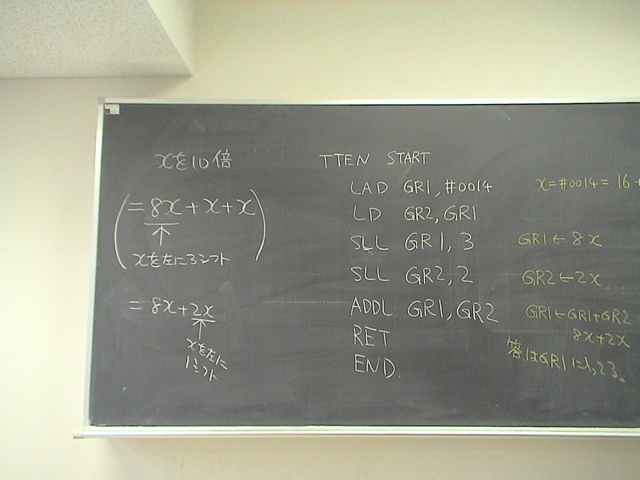 xを10倍
(=8x+x+x)
↑
xを左に3シフト
=8x+2x
↑
xを左に
1シフト
TTEN START
LAD GR1, #0014
LD GR2, GR1
SLL GR1, 3
SLL GR2, 2
ADDL GR1, GR2
RET
END
x=#0014=16+
GR1←8x
GR2←2x
GR1←GR1+GR2
8x+2x
答はGR1に入る。